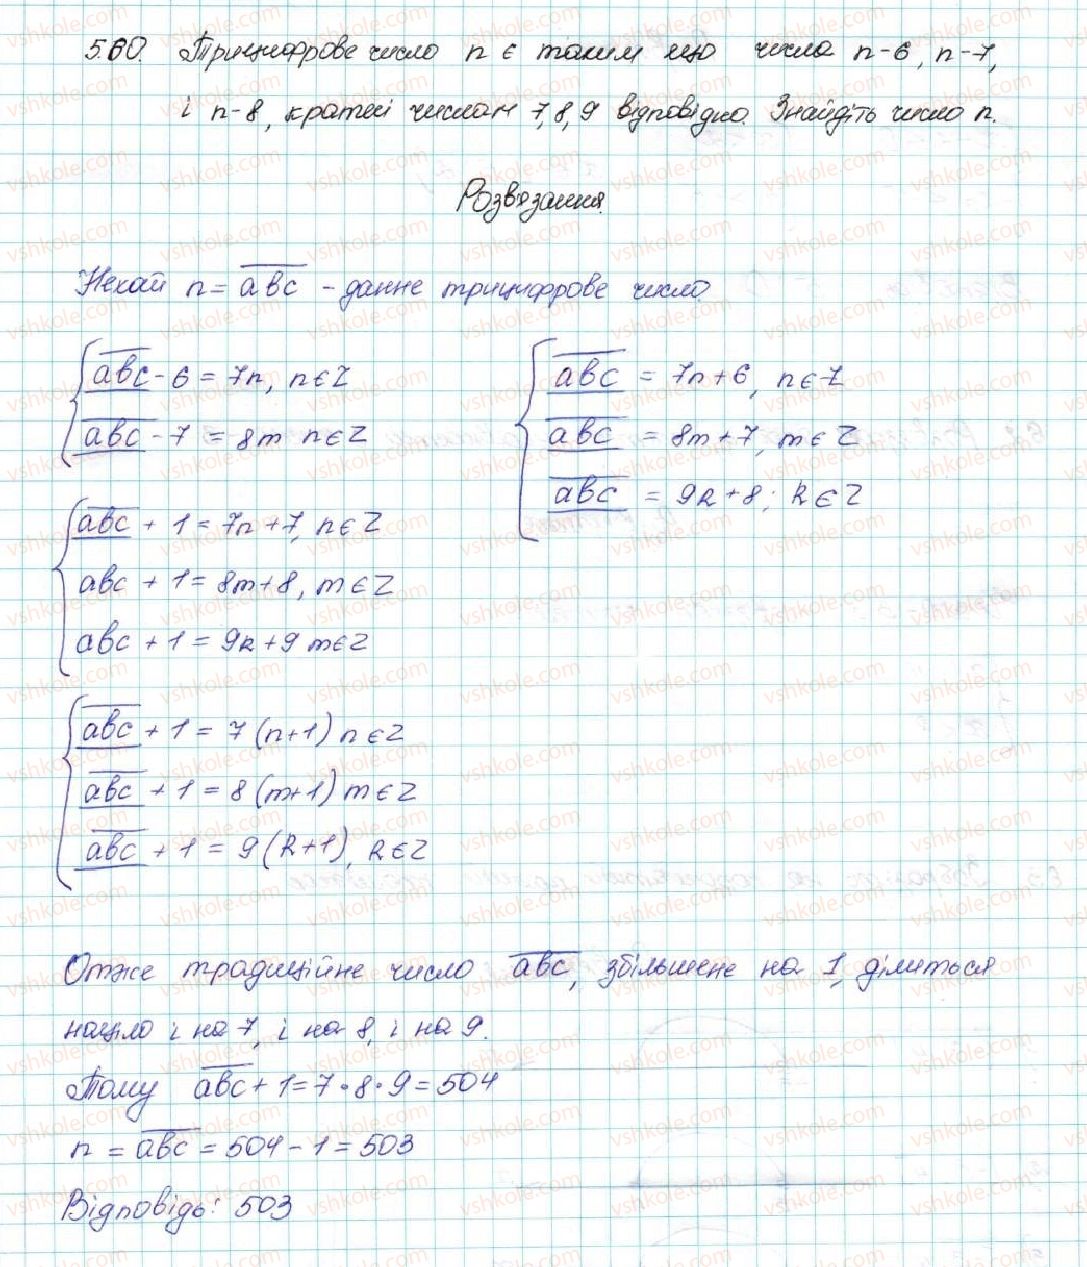 560. Трицифрове число n є таким що числа n-6, n-7,
і n-8, кратні числам 7,8,9 відповідно. Знайдіть число n.
Розв'язання.
Нехай n = abc - данне трицифрове число.
abc - 6 = 7n, n∈Z
abc - 7 = 8m n∈Z
abc = 7n+6, n∈Z
abc = 8m+7, m∈Z
abc = 9k+8; k∈Z
abc + 1 = 7n+7, n∈Z
abc + 1 = 8m+8, m∈Z
abc + 1 = 9k+9 m∈Z
abc + 1 = 7(n+1) n∈Z
abc + 1 = 8(m+1) m∈Z
abc + 1 = 9(k+1), k∈Z
Отже традиційне число abc, збільшене на 1, ділиться
націло і на 7, і на 8, і на 9.
Тому abc+1=7·8·9=504
n = abc = 504-1=503
Відповідь: 503